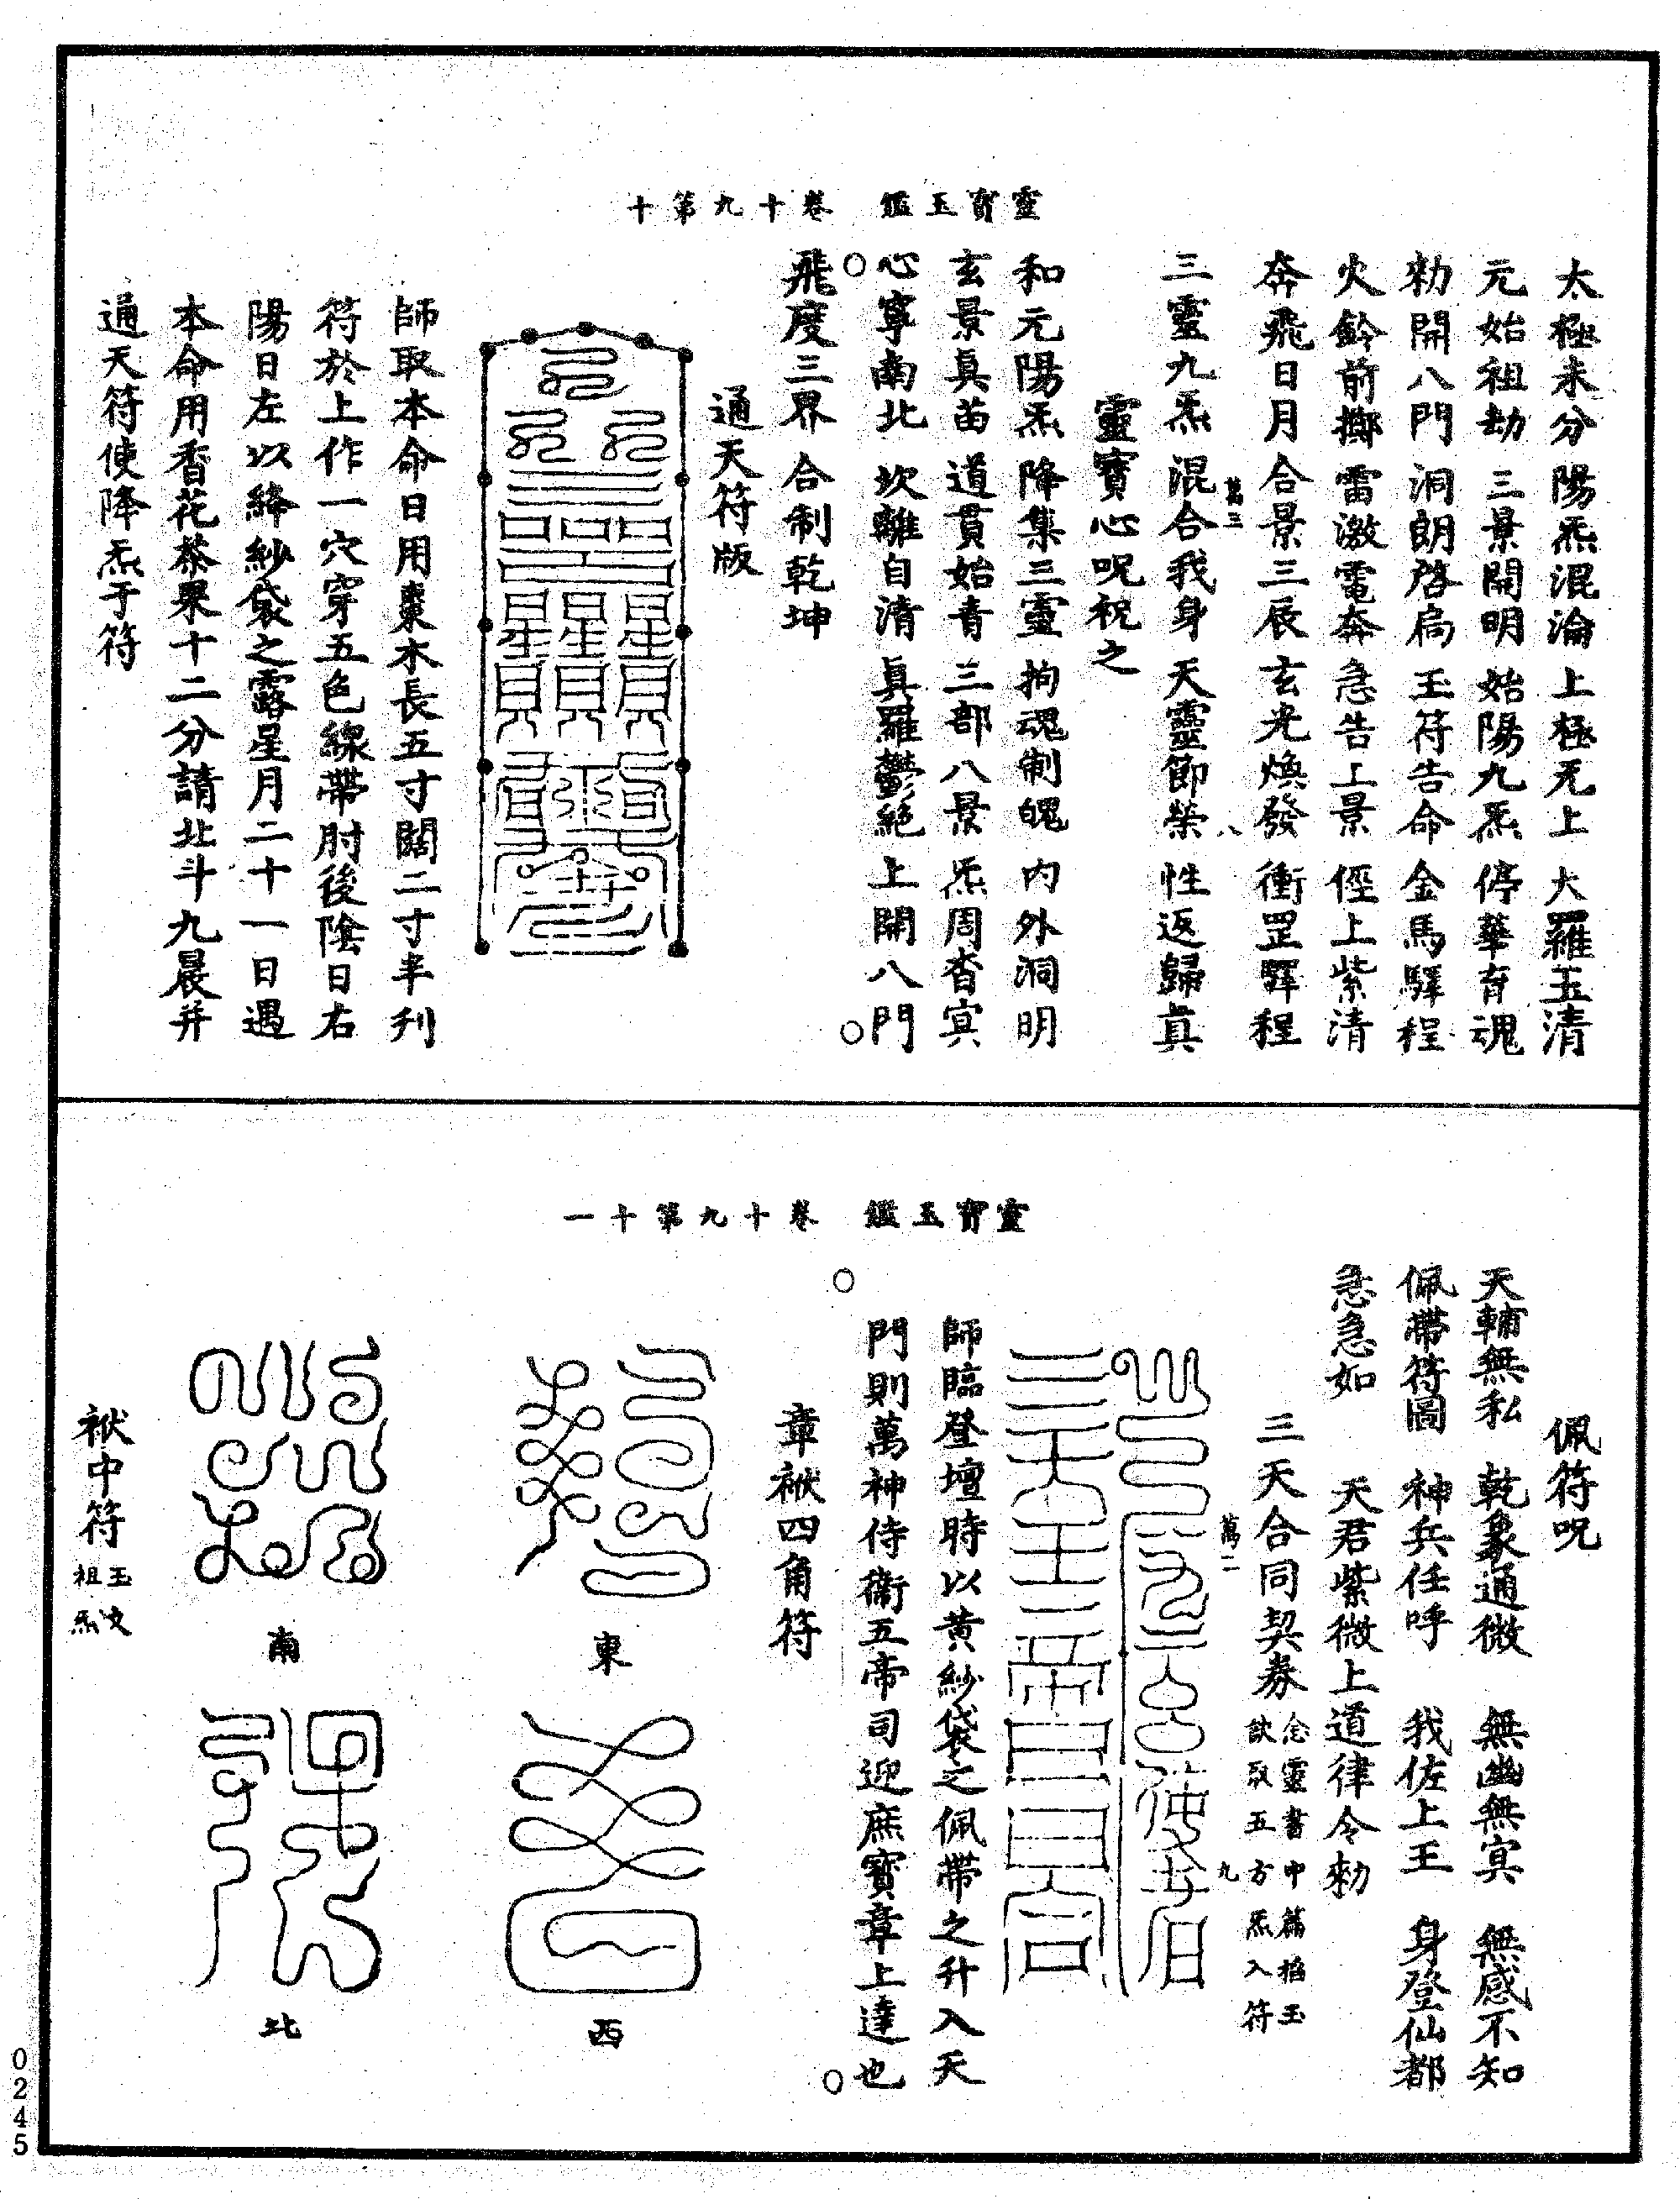 靈寶玉鑑　卷十九第十
太極未分　陽炁混淪　上極无上　大羅玉清
元始祖劫　三景開明　始陽九炁　停華育魂
勑開八門　洞朗啓扃　玉符告命　金馬驛程
火鈴前擲　雷激電奔　急告上景　徑上紫清
奔飛日月　合景三辰　玄光煥發　衝罡驛程
萬三　八
三靈九炁　混合我身　天靈節榮　性返歸真
靈寶心呪祝之
和元陽炁　降集三靈　拘魂制魄　內外洞明
玄景真苗　道貫始青　三部八景　炁周杳冥
心寧南北　坎離自清　真羅鬱絕　上開八門
飛度三界　合制乾坤
通天符版
師取本命日用棗木長五寸闊二寸半刋
符於上作一穴穿五色線帶肘後陰日右
陽日左以絳紗袋之露星月二十一日遇
本命用香花茶果十二分請北斗九晨并
通天符使降炁于符
靈寶玉鑑　卷十九第十一
佩符呪
天輔無私　乾象通微　無幽無冥　無感不知
佩帶符圖　神兵任呼　我佐上王　身登仙都
急急如　天君紫微上道律令勑
三天合同契券 念靈書中篇掐玉
訣取五方炁入符
萬二　九
師臨登壇時以黃紗袋之佩帶之升入天
門則萬神侍衞五帝司迎庶寶章上達也
章袱四角符
東
西
南
北
袱中符 玉文
祖炁
0245